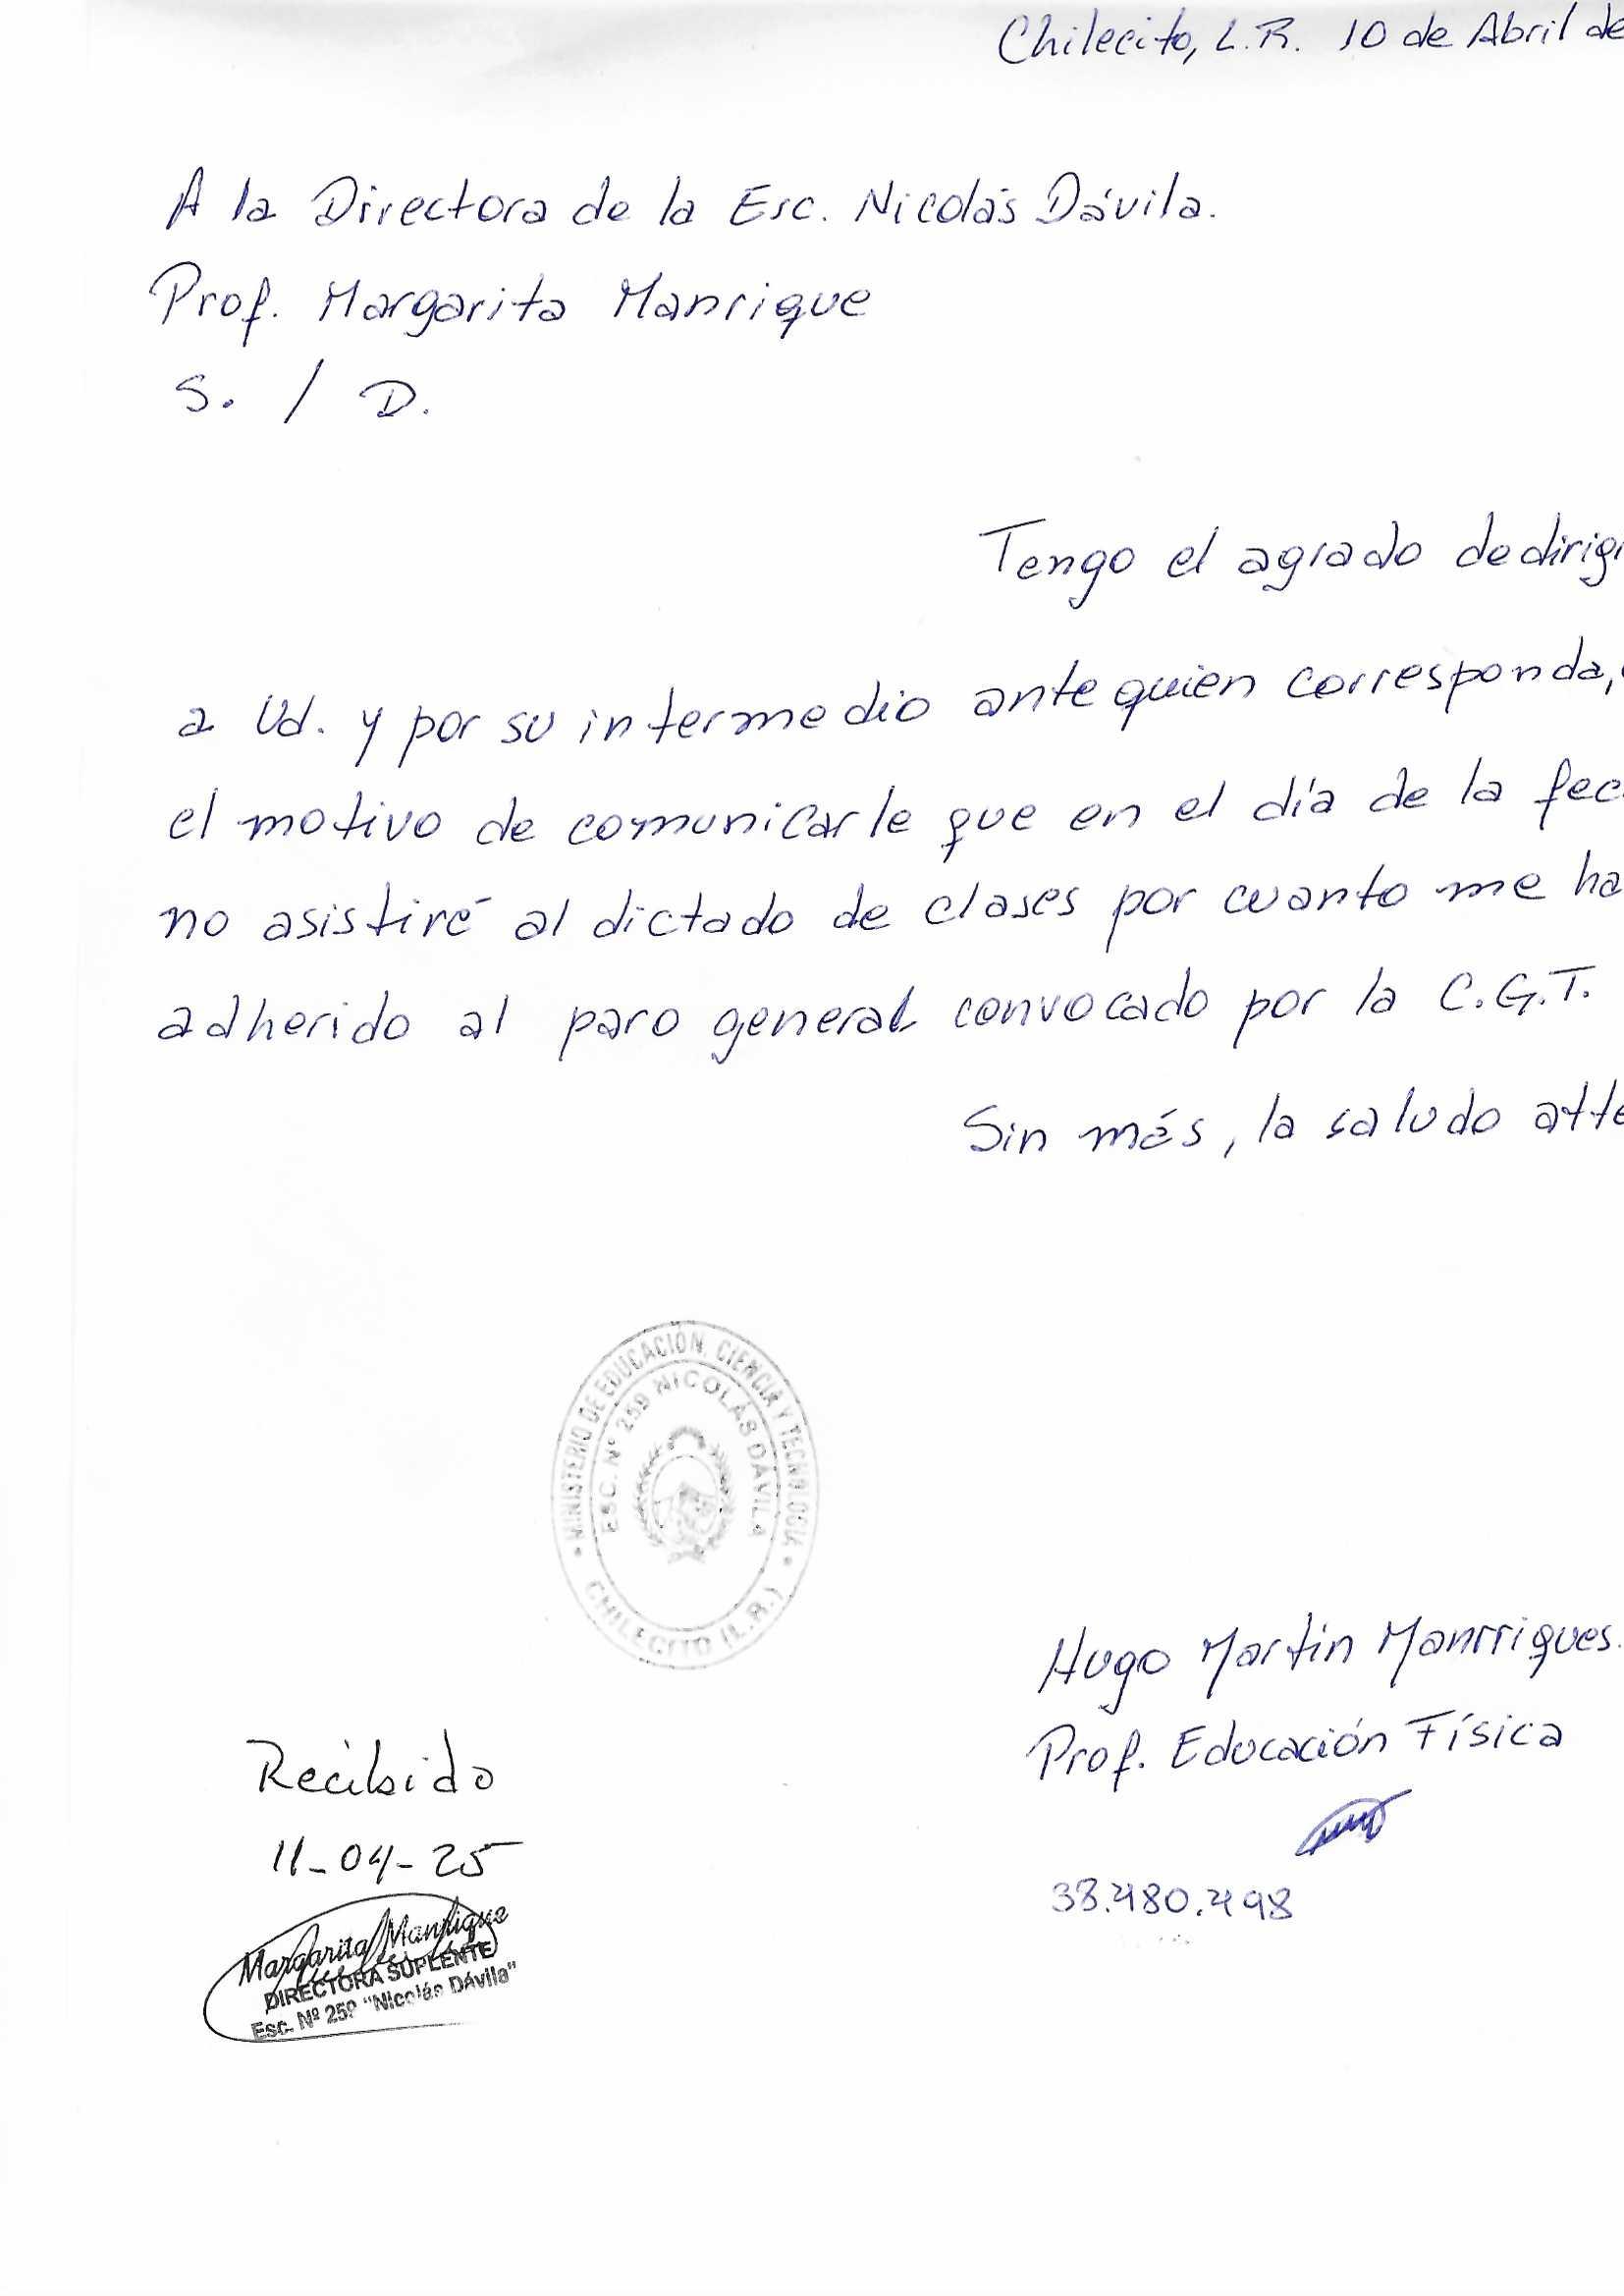 Chilecito, L.R. 10 de Abril de
A la Directora de la Esc. Nicolás Dávila.
Prof. Margarita Manrique
S. / D.
Tengo el agrado de dirigi
a Ud. y por su intermedio ante quien corresponda,
el motivo de comunicarle que en el día de la fec
no asistiré al dictado de clases por cuanto me ha
adherido al paro general convocado por la C.G.T.
Sin más, la saludo atte
MINISTERIO DE EDUCACIÓN, CIENCIA Y TECNOLOGIA
ESC. Nº 259 NICOLÁS DÁVILA
CHILECITO (L.R.)
Hugo Martín Manrriques.
Prof. Educación Física
38.480.498
Recibido
11-04-25
Margarita Manrique
DIRECTORA SUPLENTE
Esc. Nº 259 "Nicolás Dávila"